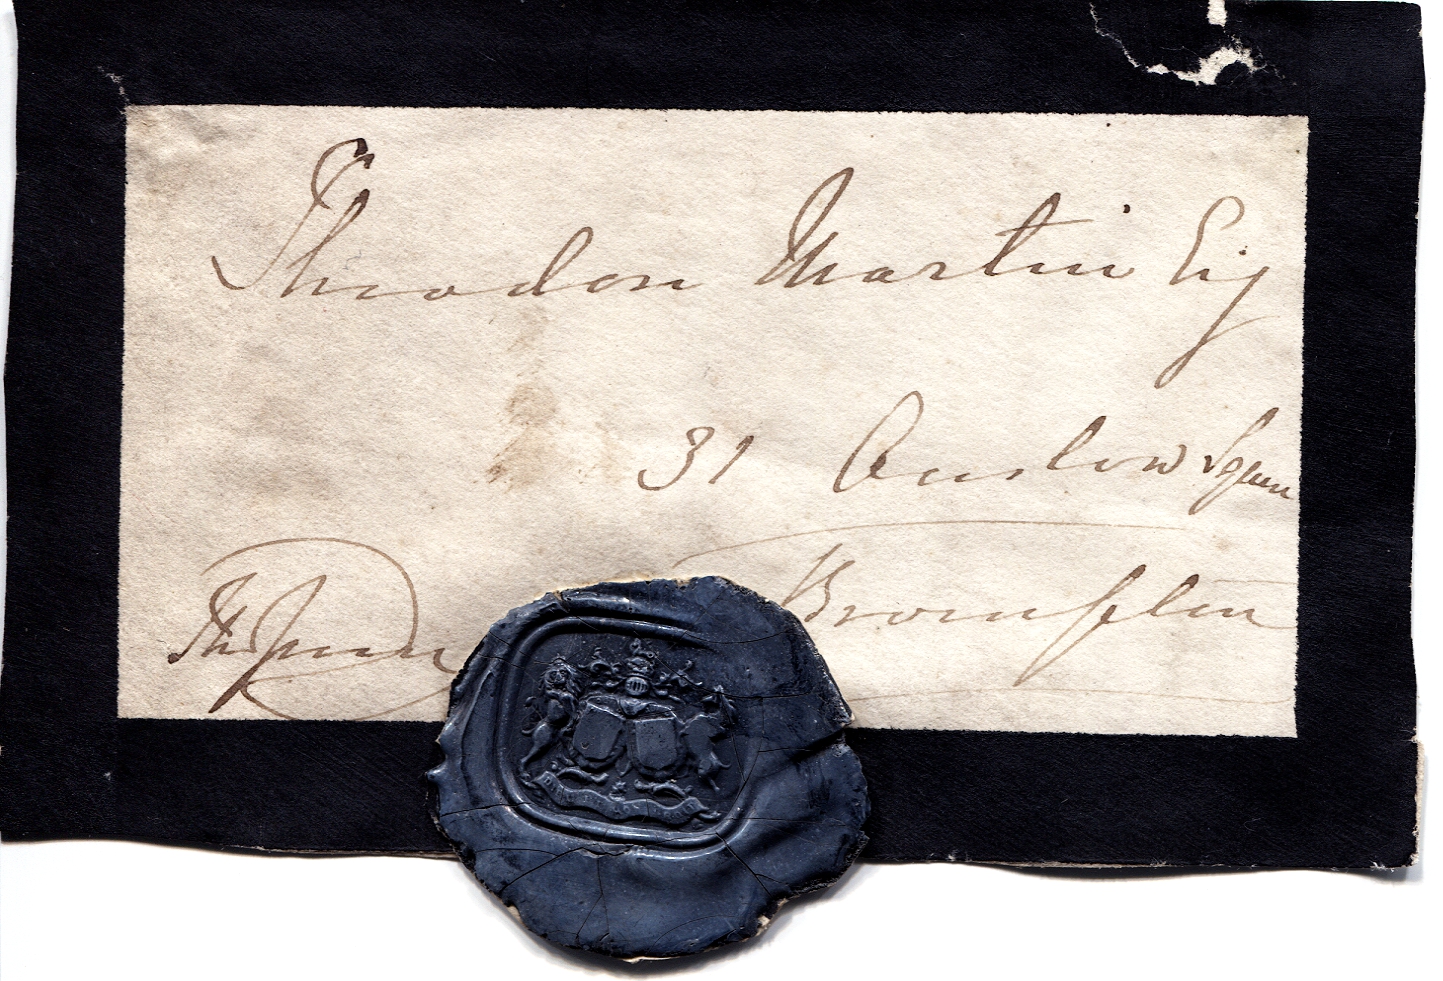 Theodore Martin Esq
31 Onslow Square
Brompton